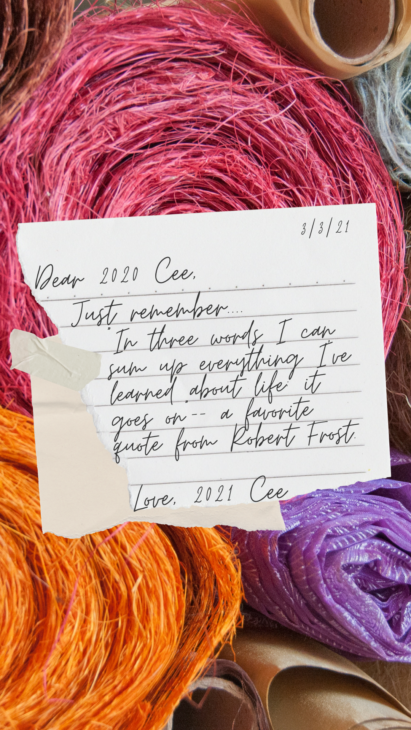 3/3/21
Dear 2020 Cee,
Just remember....
"In three words I can
sum up everything I've
learned about life: it
goes on"-- a favorite
quote from Robert Frost.
Love, 2021 Cee